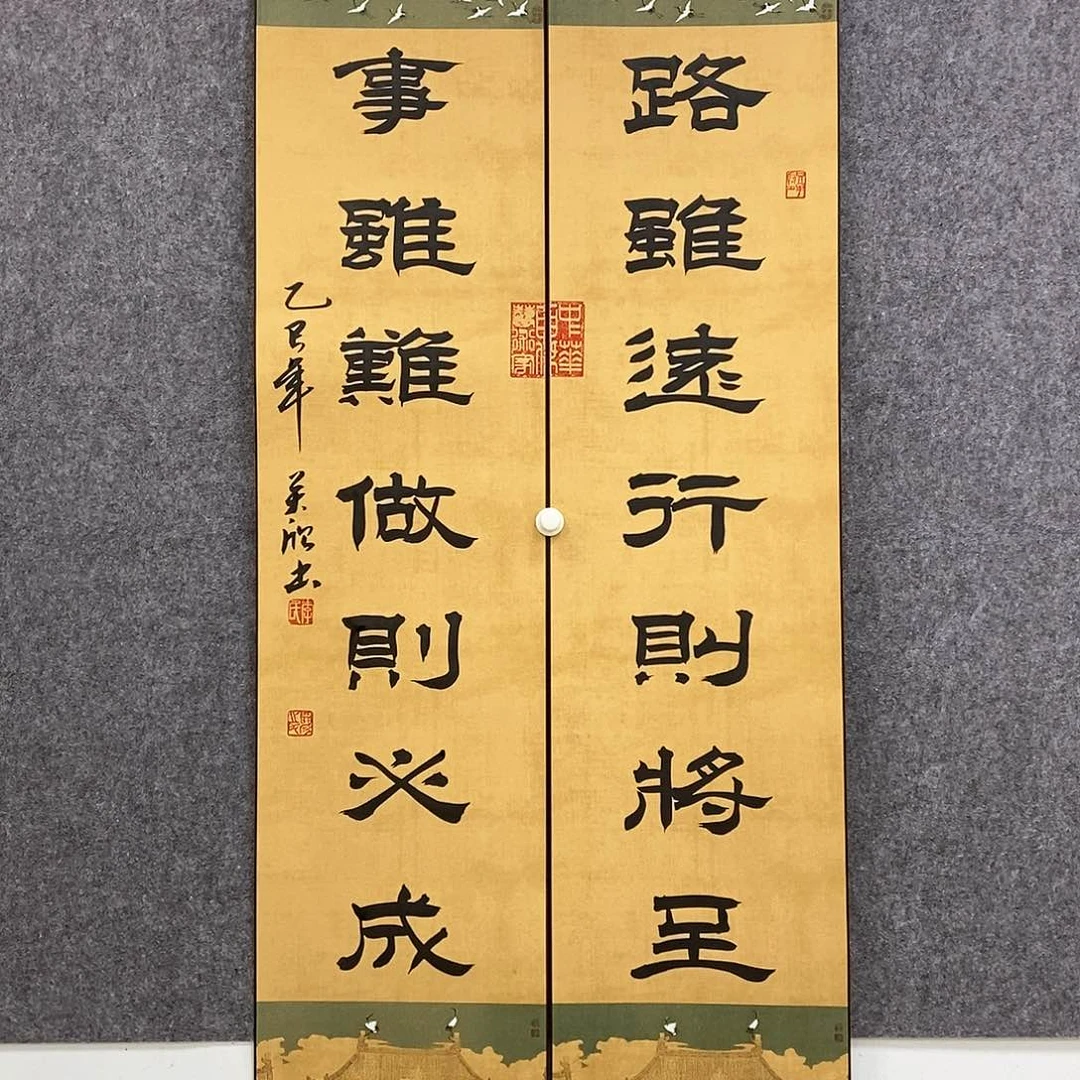 路雖遠行則將至
事雖難做則必成
乙巳年 美欣书